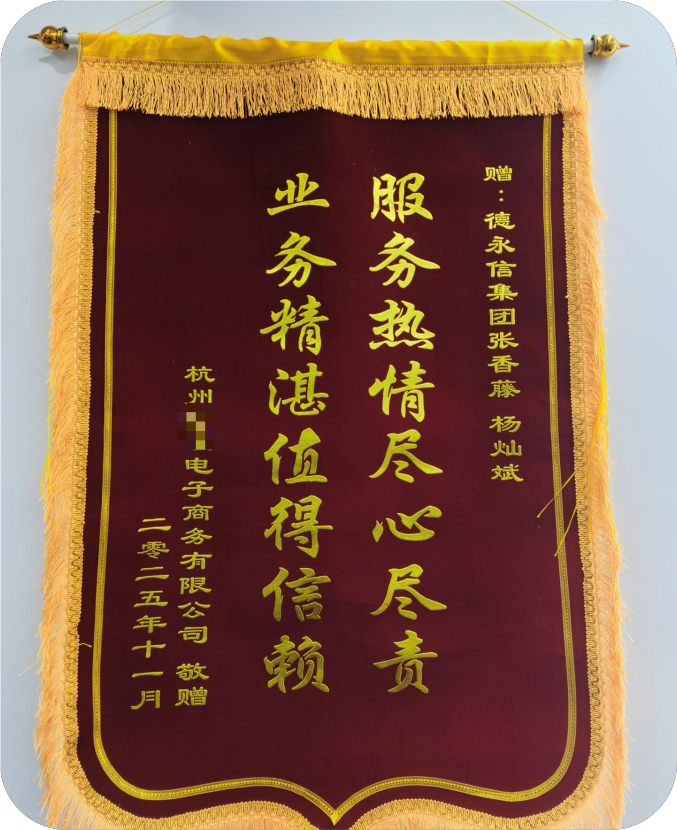 赠：德永信集团张香藤 杨灿斌
服务热情尽心尽责
业务精湛值得信赖
杭州电子商务有限公司 敬赠
二零二五年十一月